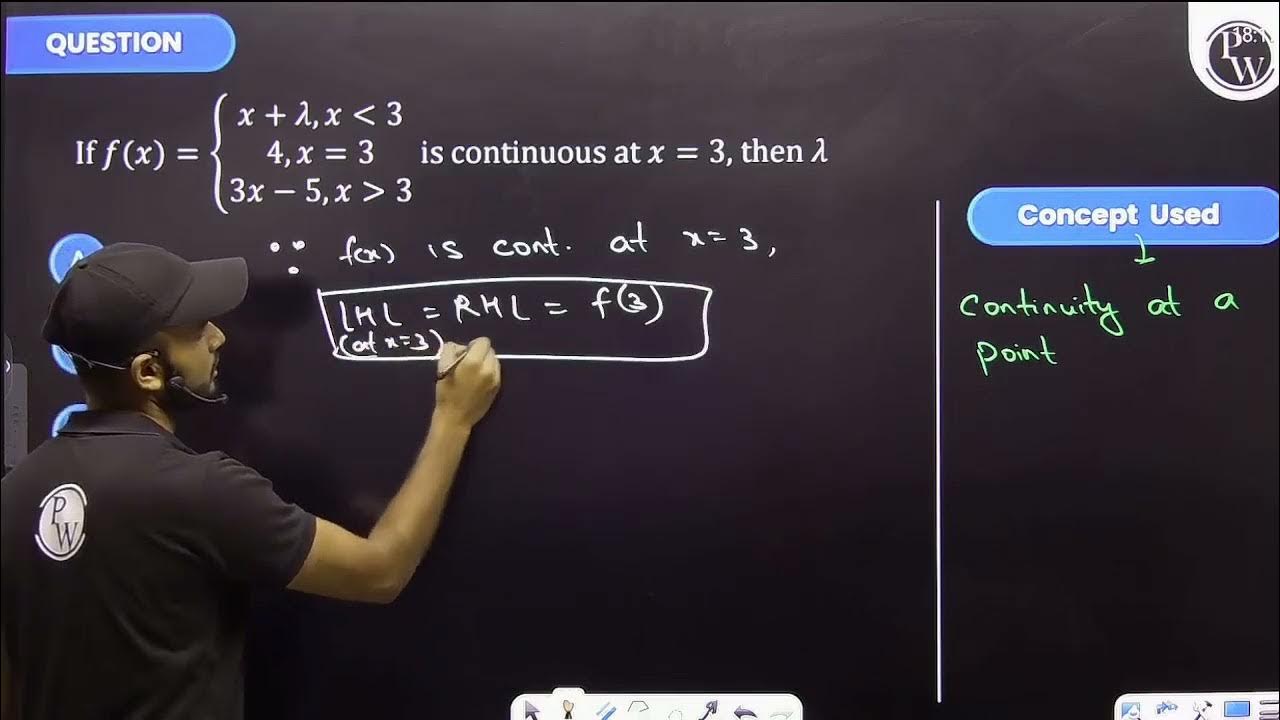 QUESTION
18:1
PW
x + λ, x < 3
If f(x) = { 4, x = 3 is continuous at x = 3, then λ
3x − 5, x > 3
Concept Used
∵ f(x) is cont. at x = 3,
LHL = RHL = f(3)
(at x=3)
Continuity at a
point
PW